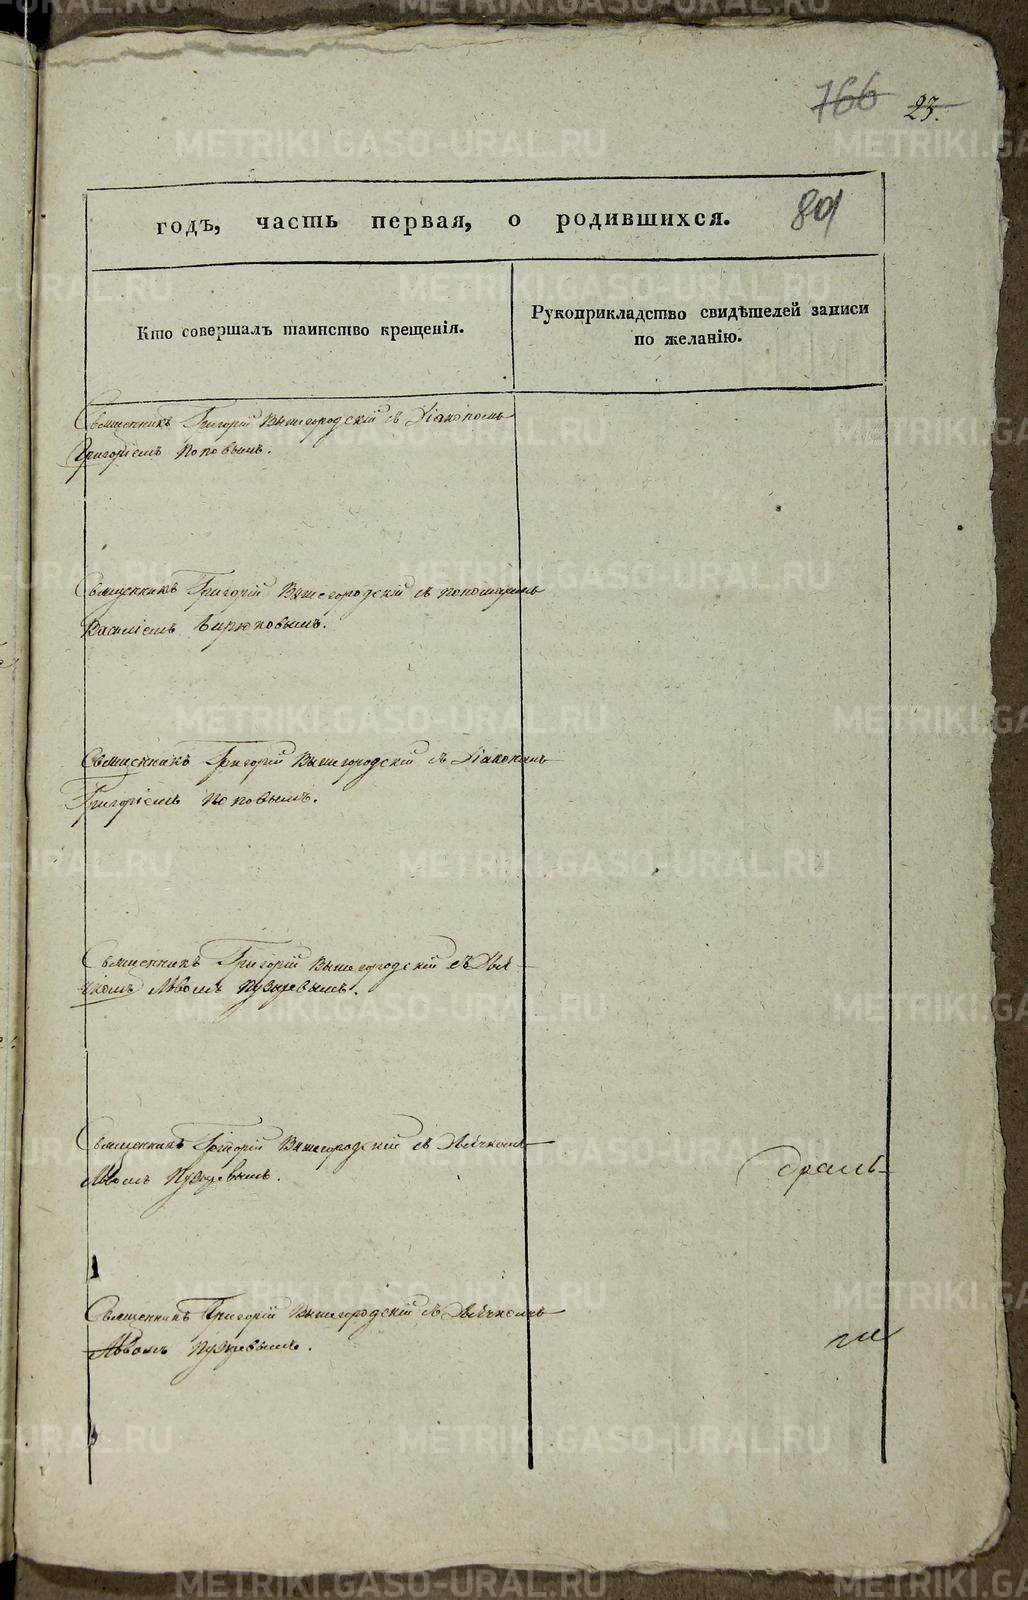 766 23.
годъ, часть первая, о родившихся. 801
Кто совершалъ таинство крещенія.
Рукоприкладство свидѣтелей записи
по желанію.
Священникъ Григорій Вышегородскій съ Діакономъ
Григоріемъ Поповымъ.
Священникъ Григорій Вышегородскій съ пономаремъ
Василіемъ Бирюковымъ.
Священникъ Григорій Вышегородскій съ Діакономъ
Григоріемъ Поповымъ.
Священникъ Григорій Вышегородскій съ Дья-
чкомъ Львомъ Пузыревымъ.
Священникъ Григорій Вышегородскій съ Дьячкомъ
Львомъ Пузыревымъ.
Священникъ Григорій Вышегородскій съ Дьячкомъ
Львомъ Пузыревымъ.
METRIKI.GASO-URAL.RU